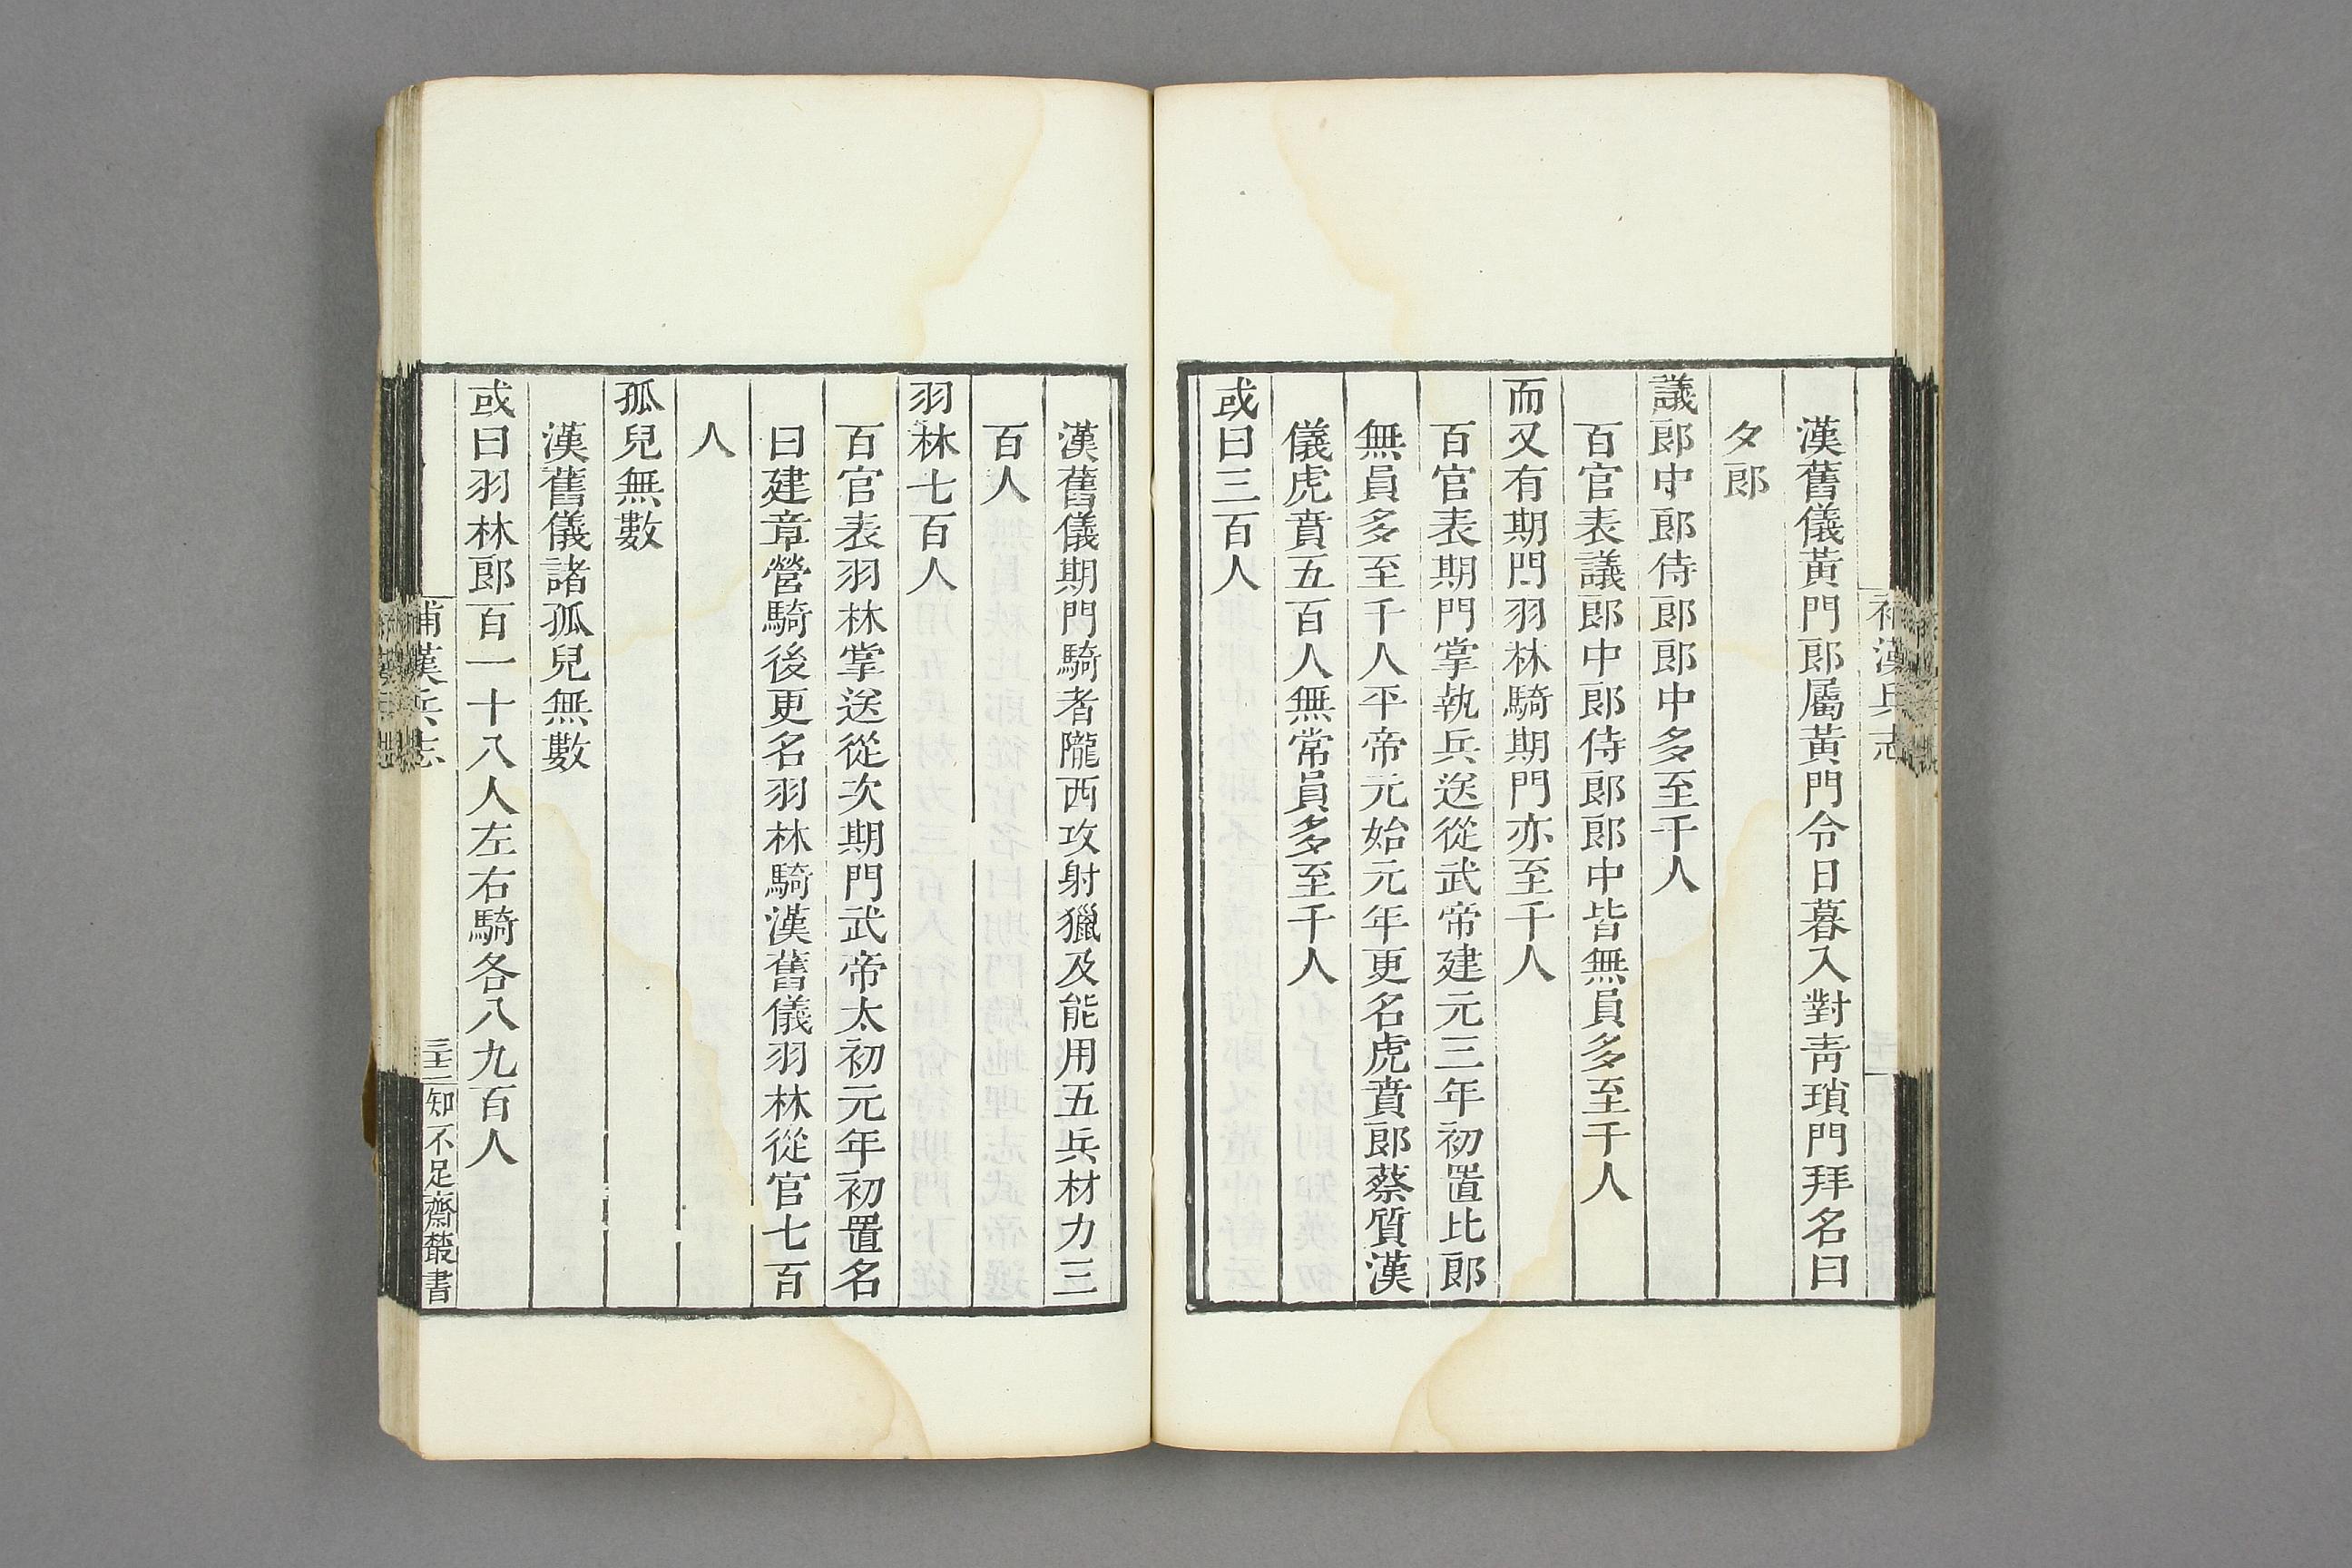 漢舊儀黃門郎屬黃門令日暮入對靑瑣門拜名曰
夕郎
議郎中郎侍郎郎中多至千人
百官表議郎中郎侍郎郎中皆無員多至千人
而又有期門羽林騎期門亦至千人
百官表期門掌執兵送從武帝建元三年初置比郎
無員多至千人平帝元始元年更名虎賁郎蔡質漢
儀虎賁五百人無常員多至千人
或曰三百人
漢舊儀期門騎者隴西攻射獵及能用五兵材力三
百人
羽林七百人
百官表羽林掌送從次期門武帝太初元年初置名
曰建章營騎後更名羽林騎漢舊儀羽林從官七百
人
孤兒無數
漢舊儀諸孤兒無數
或曰羽林郎百一十八人左右騎各八九百人
補漢兵志
知不足齋叢書